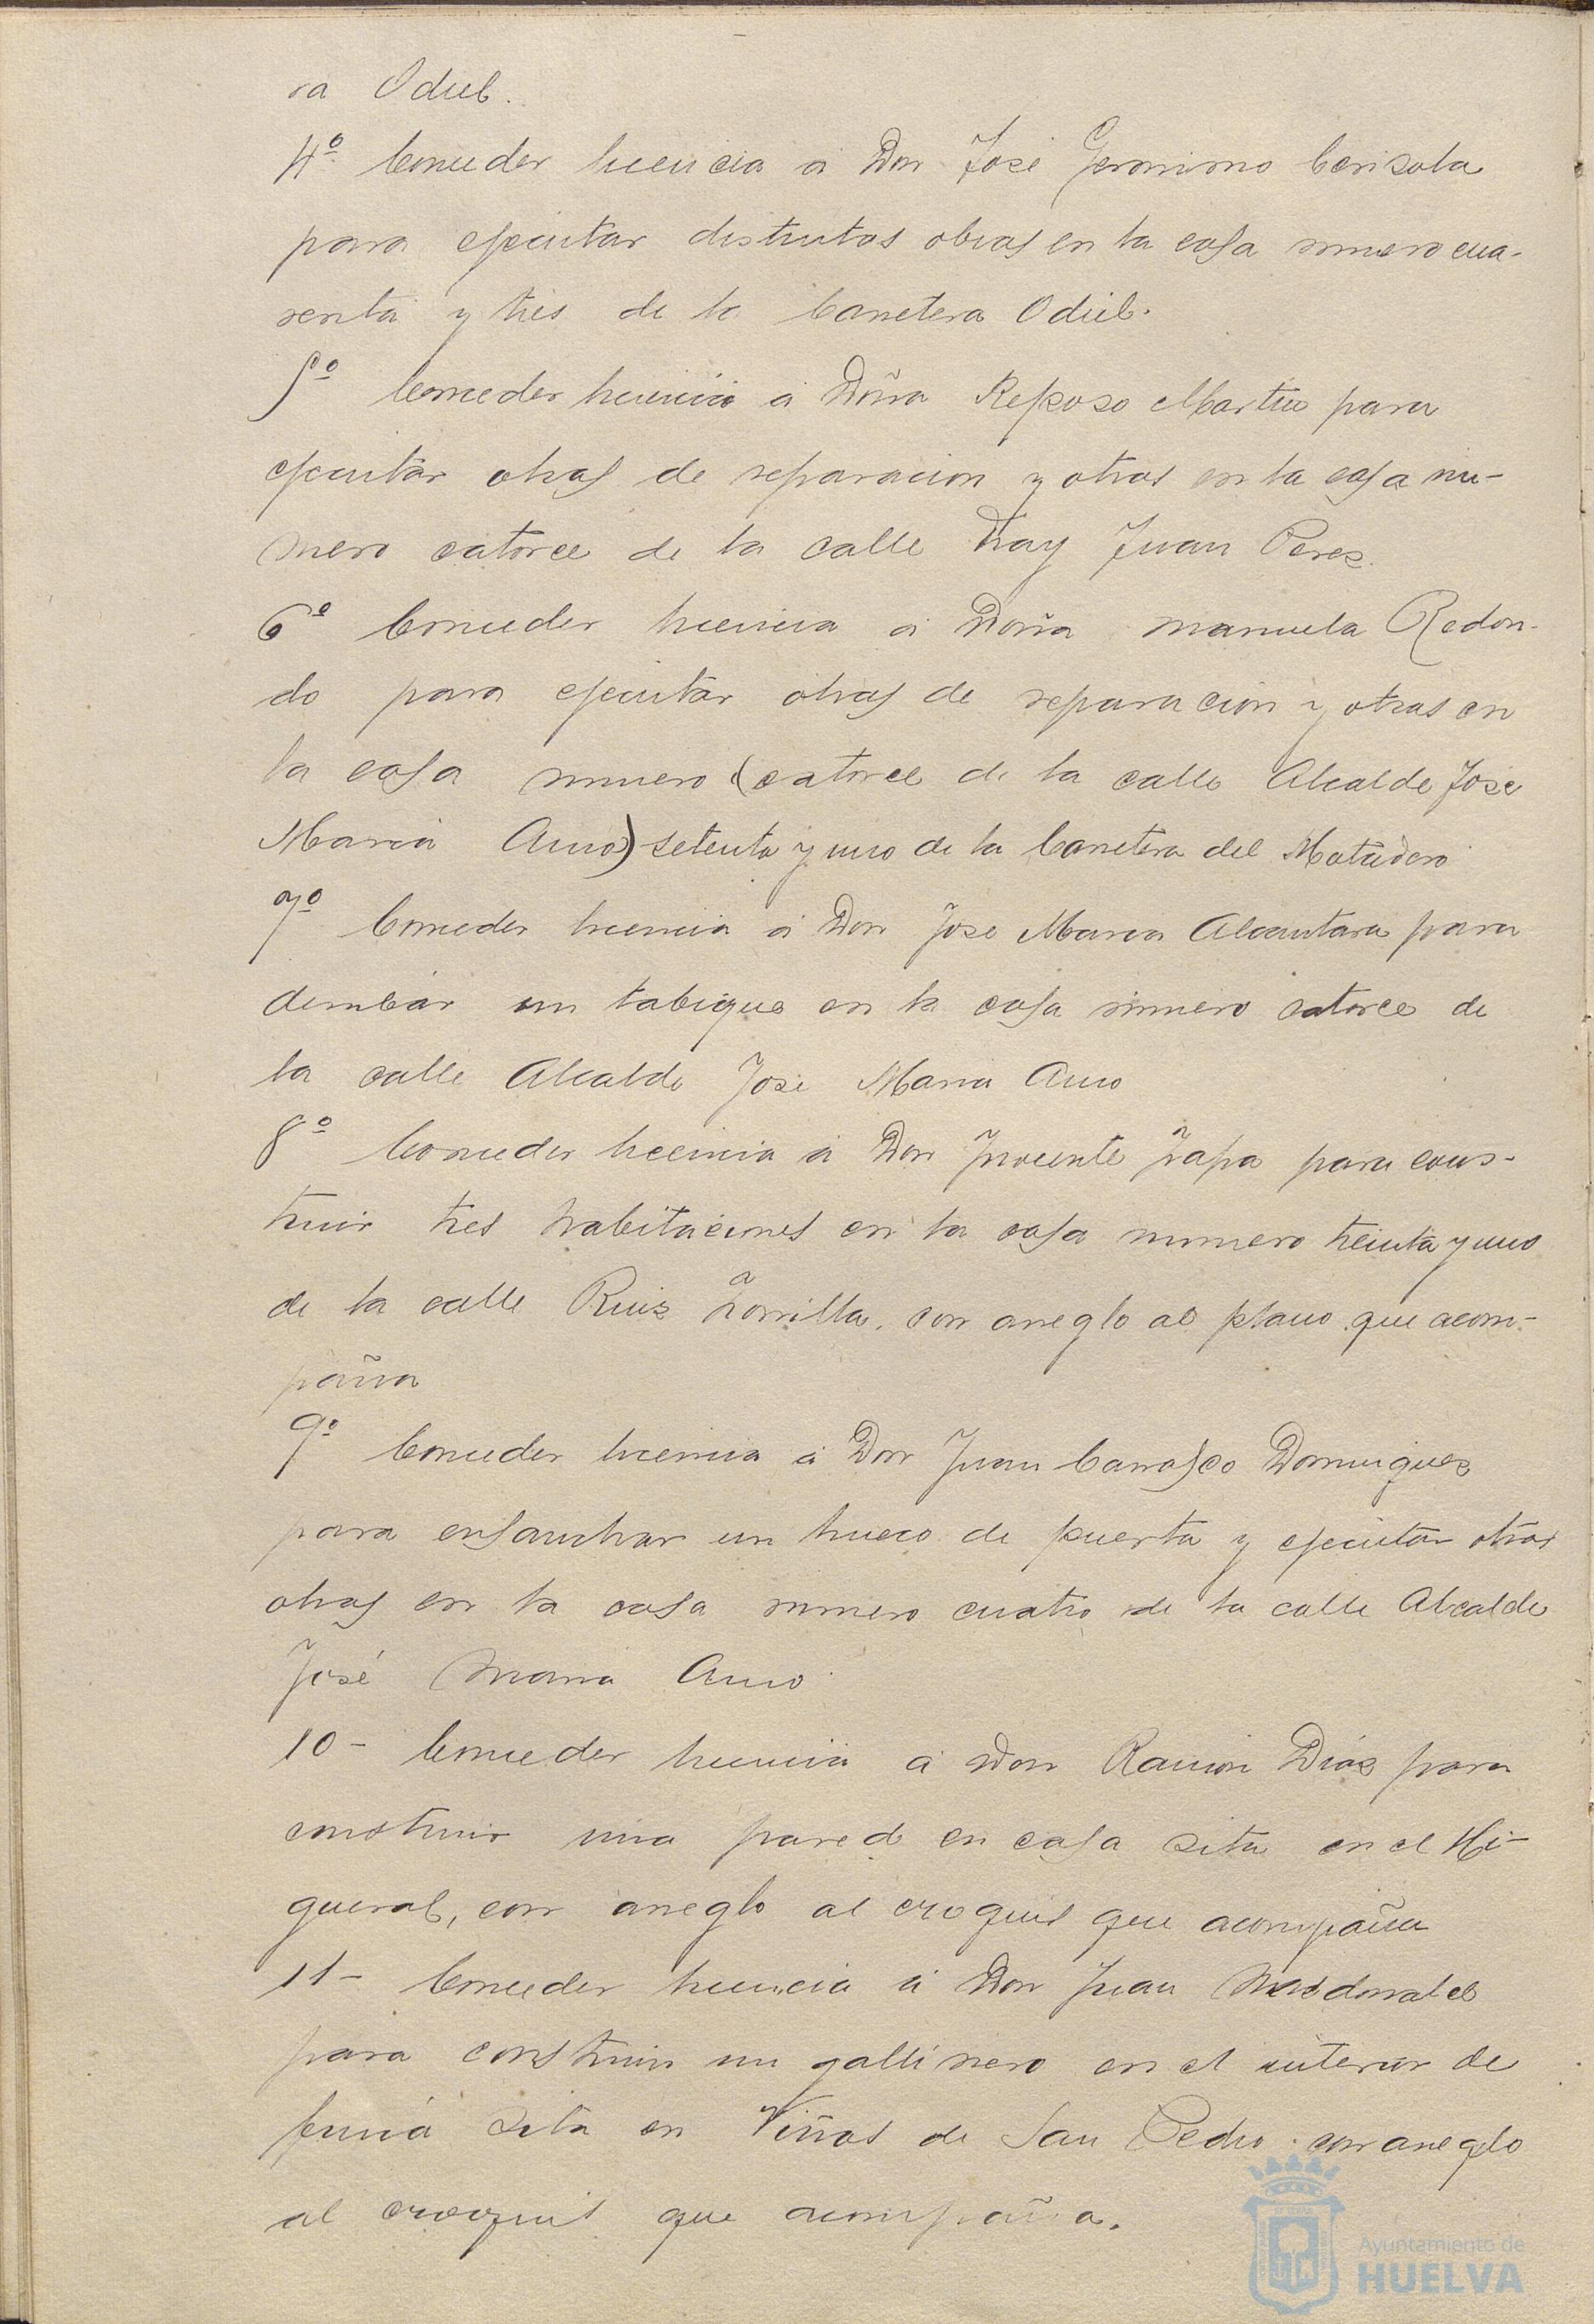 ra Odiel.
4º Conceder licencia á Don José Geronimo Cerisola
para ejecutar distintas obras en la casa numero cua-
renta y tres de la Carretera Odiel.
5º Conceder licencia á Doña Reposo Martin para
ejecutar obras de reparacion y otras en la casa nu-
mero catorce de la calle Fray Juan Perez.
6º Conceder licencia á Doña Manuela Redon-
do para ejecutar obras de reparación y otras en
la casa numero (catorce de la calle Alcalde José
María Amo) setenta y uno de la Carretera del Matadero
7º Conceder licencia á Don José Maria Alcantara para
derribar un tabique en la casa número catorce de
la calle Alcalde José Maria Amo
8º Conceder licencia á Don Inocente Zapa para cons-
truir tres habitaciones en la casa numero treinta y uno
de la calle Ruiz Zorrilla, con arreglo al plano que acom-
paña
9º Conceder licencia á Don Juan Carrasco Dominguez
para ensanchar un hueco de puerta y ejecutar otras
obras en la casa numero cuatro de la calle Alcalde
José Maria Amo.
10- Conceder licencia á Don Ramón Diáz para
construir una pared en casa sita en el Hi-
gueral, con arreglo al croquis que acompaña
11- Conceder licencia á Don Juan
para construir un gallinero en el interior de
finca sita en Viñas de San Pedro con arreglo
al croquis que acompaña.
Ayuntamiento de
HUELVA